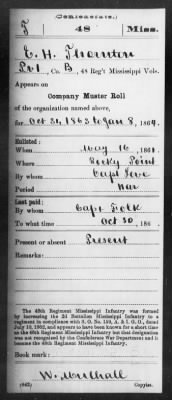 (Confederate.)
T 48 Miss.
E. H. Thornton
Pvt, Co. B, 48 Reg't Mississippi Vols.
Appears on
Company Muster Roll
of the organization named above,
for Oct 31, 1863 to Jan 8, 1864.
Enlisted:
When May 16, 186
Where Rocky Point
By whom Capt
Period War
Last paid:
By whom Capt.
To what time Oct 30, 186
Present or absent Present
Remarks:
The 48th Regiment Mississippi Infantry was formed
by increasing the 2d Battalion Mississippi Infantry to a
regiment in compliance with S. O. No. , A. & I. G. O., dated
, 1862, and appears to have been known for a short time
as the 49th Regiment Mississippi Infantry but that designation
was not recognized by the Confederate War Department and it
became the 48th Regiment Mississippi Infantry.
Book mark:
W. Mulhall
(642) Copyist.